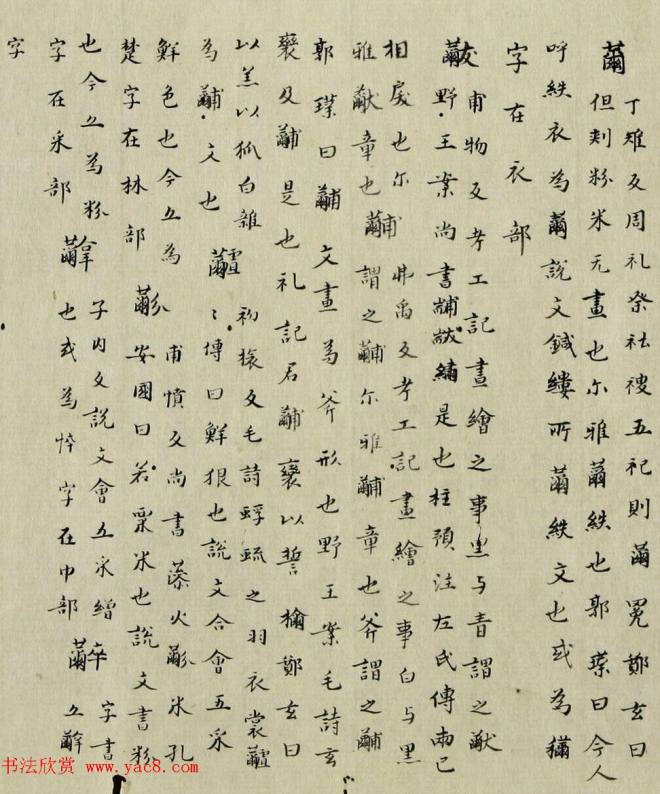 黹 丁雉反周礼祭社稷五祀則黹冕鄭玄曰
但刾粉米无畫也尓雅黹紩也郭璞曰今人
呼紩衣為黹說文鍼縷所黹紩文也或為
字在衣部
黻 甫物反考工記畫繪之事黑与青謂之黻
野王案尚書黼黻繡是也杜預注左氏傳兩己
相戾也尓
雅黻章也
黼 弗禹反考工記畫繪之事白与黑
謂之黼尓雅黼章也斧謂之黼
郭璞曰黼文畫為斧形也野王案毛詩玄
袞及黼是也礼記君黼裘以誓鄭玄曰
以羔以狐白雜
為黼文也
初旅反毛詩蜉蝣之羽衣裳
〻傳曰鮮貌也說文合會五采
鮮色也今亦為
楚字在林部
黺 甫憤反尚書藻火黺米孔
安國曰若粟米也說文畫粉
也今亦為粉
字在米部
子内反說文會五采繒
也或為悴字在巾部
字書
亦
字
书法欣赏 www.yac8.com